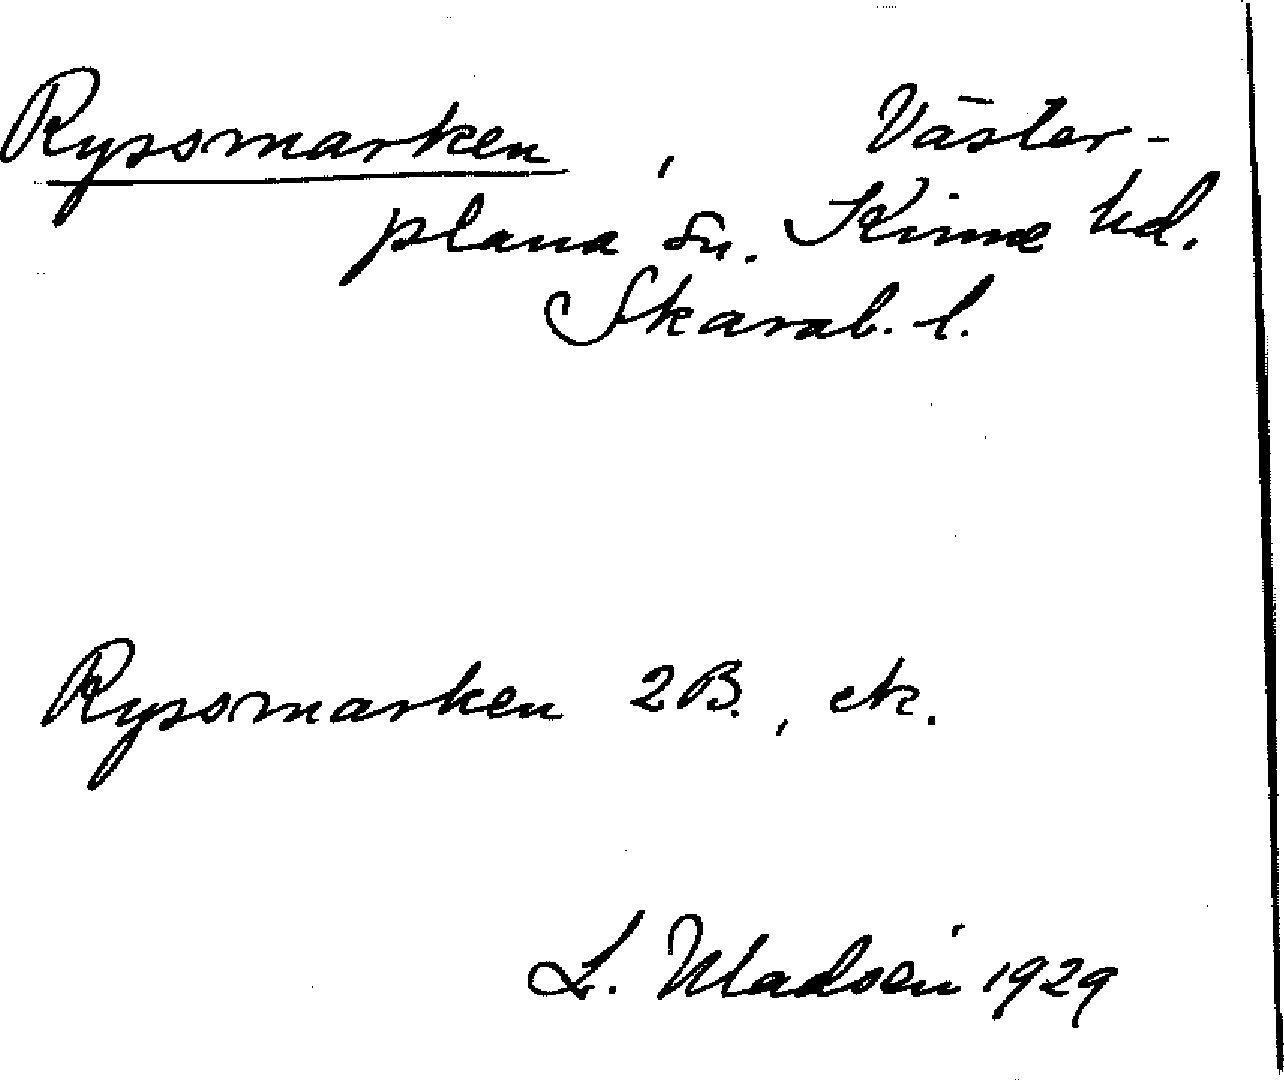 Ryssmarken, Väster-
plana sn. Kinne hd.
Skarab. l.
Ryssmarken 2B., ek.
L. Madsén 1929